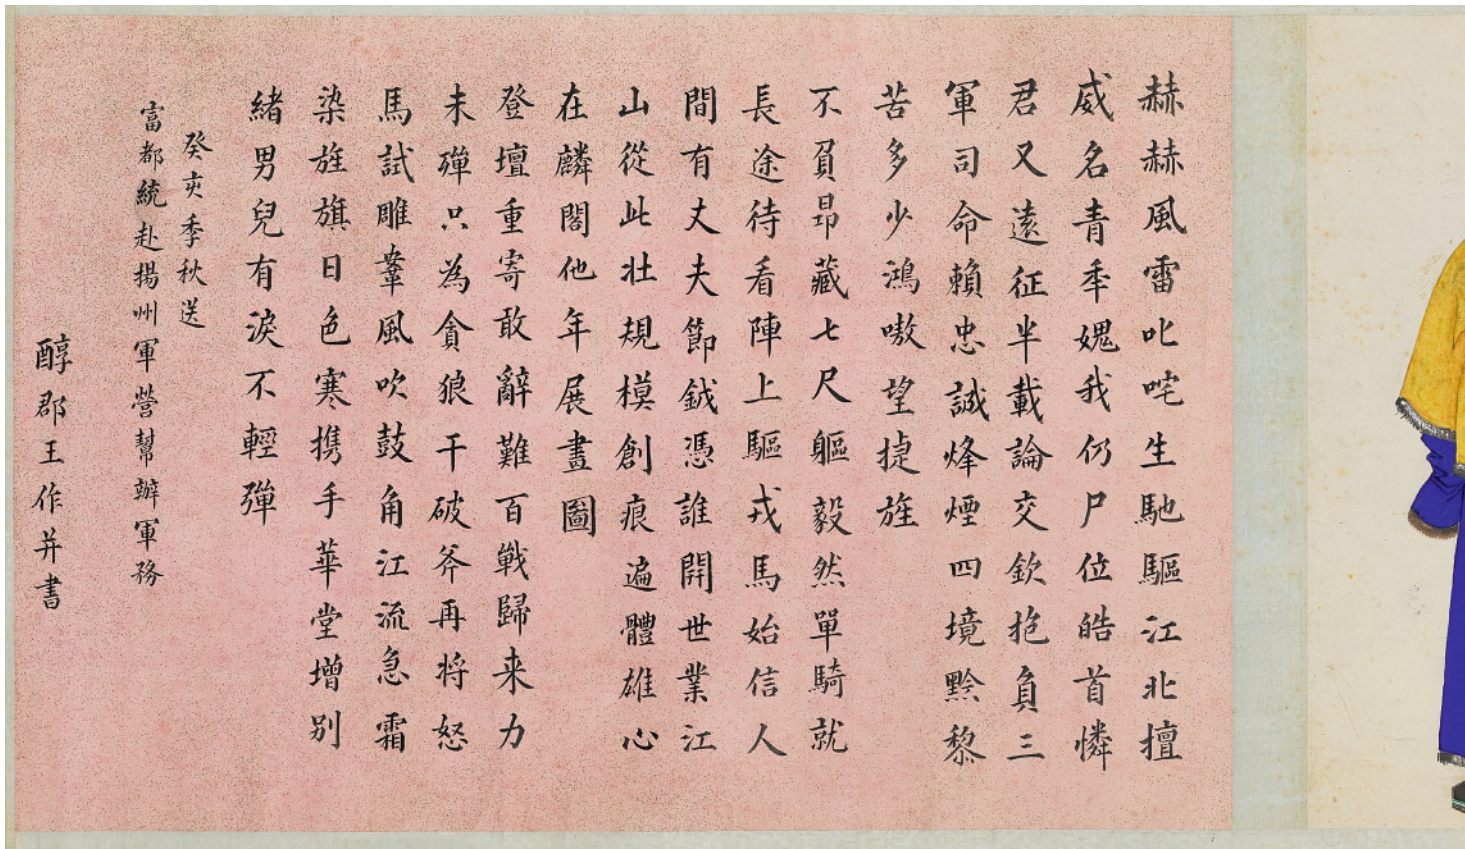 赫赫風雷叱咤生馳驅江北擅
威名青年媿我仍尸位皓首憐
君又遠征半載論交欽抱負三
軍司命賴忠誠烽煙四境黔黎
苦多少鴻嗷望捷旌
不負昂藏七尺軀毅然單騎就
長途待看陣上驅戎馬始信人
間有丈夫節鉞憑誰開世業江
山從此壯規模創痕遍體雄心
在麟閣他年展畫圖
登壇重寄敢辭難百戰歸来力
未殫只為貪狼干破斧再將怒
馬試雕鞌風吹鼓角江流急霜
染旌旗日色寒携手華堂增别
緒男兒有淚不輕彈
癸亥季秋送
富都統赴揚州軍營幫辦軍務
醇郡王作并書